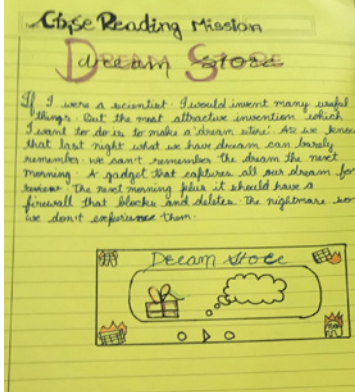 Cbse Reading Mission
Dream Store
If I were a scientist. I would invent many useful
things. But the most attractive invention which
I want to do is to make a 'dream store'. As we know
that last night what we have dream can barely
remember. we can't remember the dream the next
morning. A gadget that captures all our dream for
review. The next morning plus it should have a
firewall that blocks and deletes. the nightmare so
we don't experience them.
Dream Store